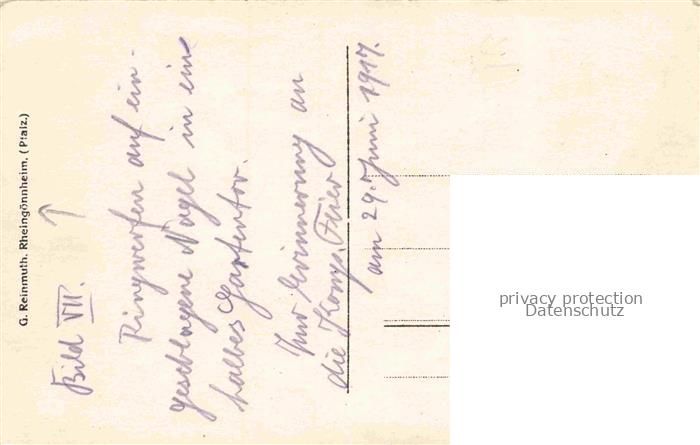 G. Reinmuth. Rheingönnheim. (Pfalz.)
Bild VII.
Ringwerfen auf ein-
geschlagene Nägel in ein
halbes Gartentor.
Zur Erinnerung an
die Feier
am 29. Juni 1917.
privacy protection
Datenschutz